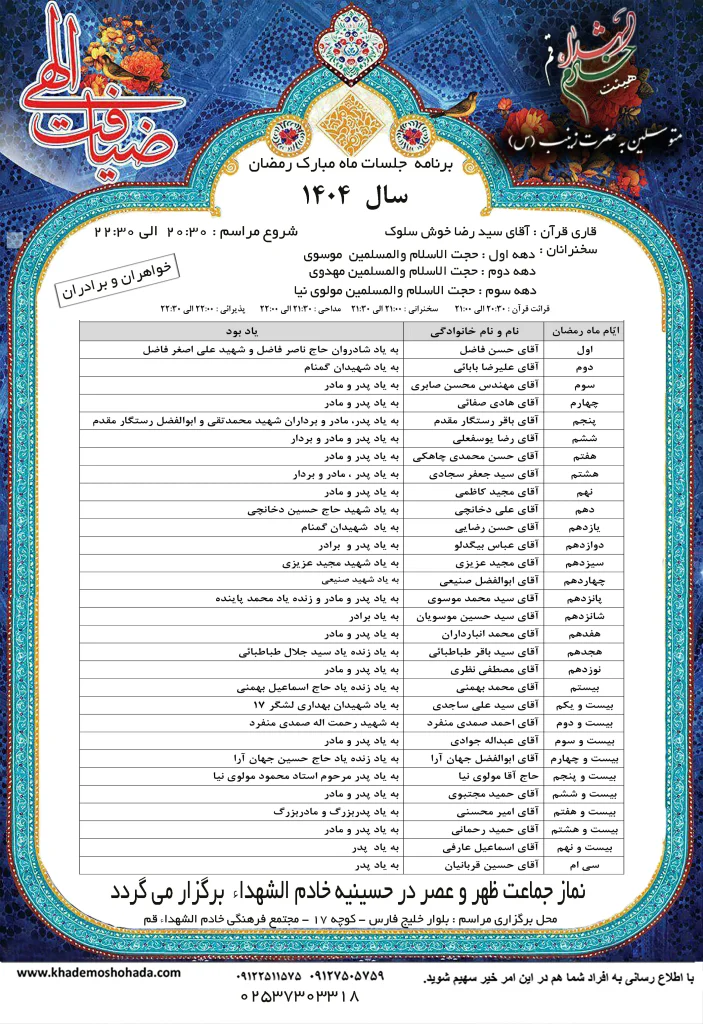 ضیافت الهی
هیئت خادم الشهداء قم
متوسلین به حضرت زینب (س)
برنامه جلسات ماه مبارک رمضان
سال ۱۴۰۴
قاری قرآن : آقای سید رضا خوش سلوک
شروع مراسم : ۲۰:۳۰ الی ۲۲:۳۰
سخنرانان :
دهه اول : حجت الاسلام والمسلمین موسوی
دهه دوم : حجت الاسلام والمسلمین مهدوی
دهه سوم : حجت الاسلام والمسلمین مولوی نیا
خواهران و برادران
قرائت قرآن : ۲۰:۳۰ الی ۲۱:۰۰ سخنرانی : ۲۱:۰۰ الی ۲۱:۳۰ مداحی : ۲۱:۳۰ الی ۲۲:۰۰ پذیرائی : ۲۲:۰۰ الی ۲۲:۳۰
ایّام ماه رمضان نام و نام خانوادگی یاد بود
اول آقای حسن فاضل به یاد شادروان حاج ناصر فاضل و شهید علی اصغر فاضل
دوم آقای علیرضا بابائی به یاد شهیدان گمنام
سوم آقای مهندس محسن صابری به یاد پدر و مادر
چهارم آقای هادی صفائی به یاد پدر و مادر
پنجم آقای باقر رستگار مقدم به یاد پدر، مادر و برداران شهید محمدتقی و ابوالفضل رستگار مقدم
ششم آقای رضا یوسفعلی به یاد پدر و مادر و بردار
هفتم آقای حسن محمدی چاهکی به یاد پدر و مادر
هشتم آقای سید جعفر سجادی به یاد پدر ، مادر و بردار
نهم آقای مجید کاظمی به یاد پدر و مادر
دهم آقای علی دخانچی به یاد شهید حاج حسین دخانچی
یازدهم آقای حسن رضایی به یاد شهیدان گمنام
دوازدهم آقای عباس بیگدلو به یاد پدر و برادر
سیزدهم آقای مجید عزیزی به یاد شهید مجید عزیزی
چهاردهم آقای ابوالفضل صنیعی به یاد شهید صنیعی
پانزدهم آقای سید محمد موسوی به یاد پدر و مادر و زنده یاد محمد پاینده
شانزدهم آقای سید حسین موسویان به یاد برادر
هفدهم آقای محمد انبارداران به یاد پدر و مادر
هجدهم آقای سید باقر طباطبائی به یاد زنده یاد سید جلال طباطبائی
نوزدهم آقای مصطفی نظری به یاد پدر و مادر
بیستم آقای محمد بهمنی به یاد زنده یاد حاج اسماعیل بهمنی
بیست و یکم آقای سید علی ساجدی به یاد شهیدان بهداری لشگر ۱۷
بیست و دوم آقای احمد صمدی منفرد به شهید رحمت اله صمدی منفرد
بیست و سوم آقای عبداله جوادی به یاد پدر و مادر
بیست و چهارم آقای ابوالفضل جهان آرا به یاد زنده یاد حاج حسین جهان آرا
بیست و پنجم حاج آقا مولوی نیا به یاد پدر مرحوم استاد محمود مولوی نیا
بیست و ششم آقای حمید مجتبوی به یاد پدر و مادر
بیست و هفتم آقای امیر محسنی به یاد پدربزرگ و مادربزرگ
بیست و هشتم آقای حمید رحمانی به یاد پدر و مادر
بیست و نهم آقای اسماعیل عارفی به یاد پدر
سی ام آقای حسین قربانیان به یاد پدر
نماز جماعت ظهر و عصر در حسینیه خادم الشهداء برگزار می گردد
محل برگزاری مراسم : بلوار خلیج فارس - کوچه ۱۷ - مجتمع فرهنگی خادم الشهداء قم
با اطلاع رسانی به افراد شما هم در این امر خیر سهیم شوید. ۰۹۱۲۷۵۰۵۷۵۹ ۰۹۱۲۲۵۱۱۵۷۵ www.khademoshohada.com
۰۲۵۳۷۳۰۳۳۱۸